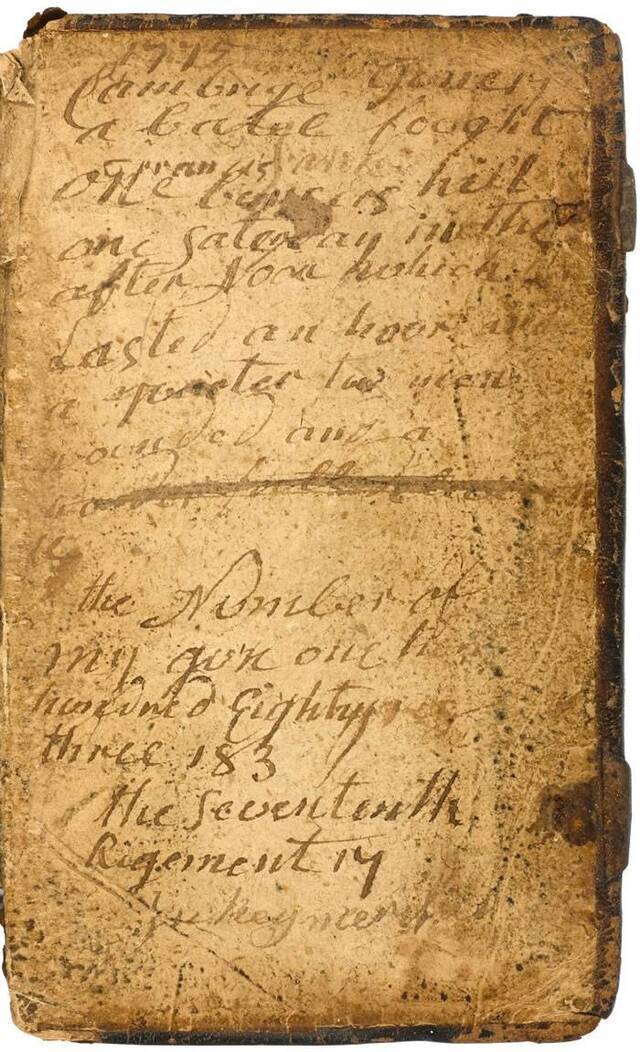 1775
Cambrige Jonery
a batel foeght
Francis
one bonkers hill
one Saterday in the
after Noon which
Lasted an hoor and
a quarter two men
wounded and a
the Number of
my gun one
hundred Eighty
three 183
the Sevententh
Rigement 17